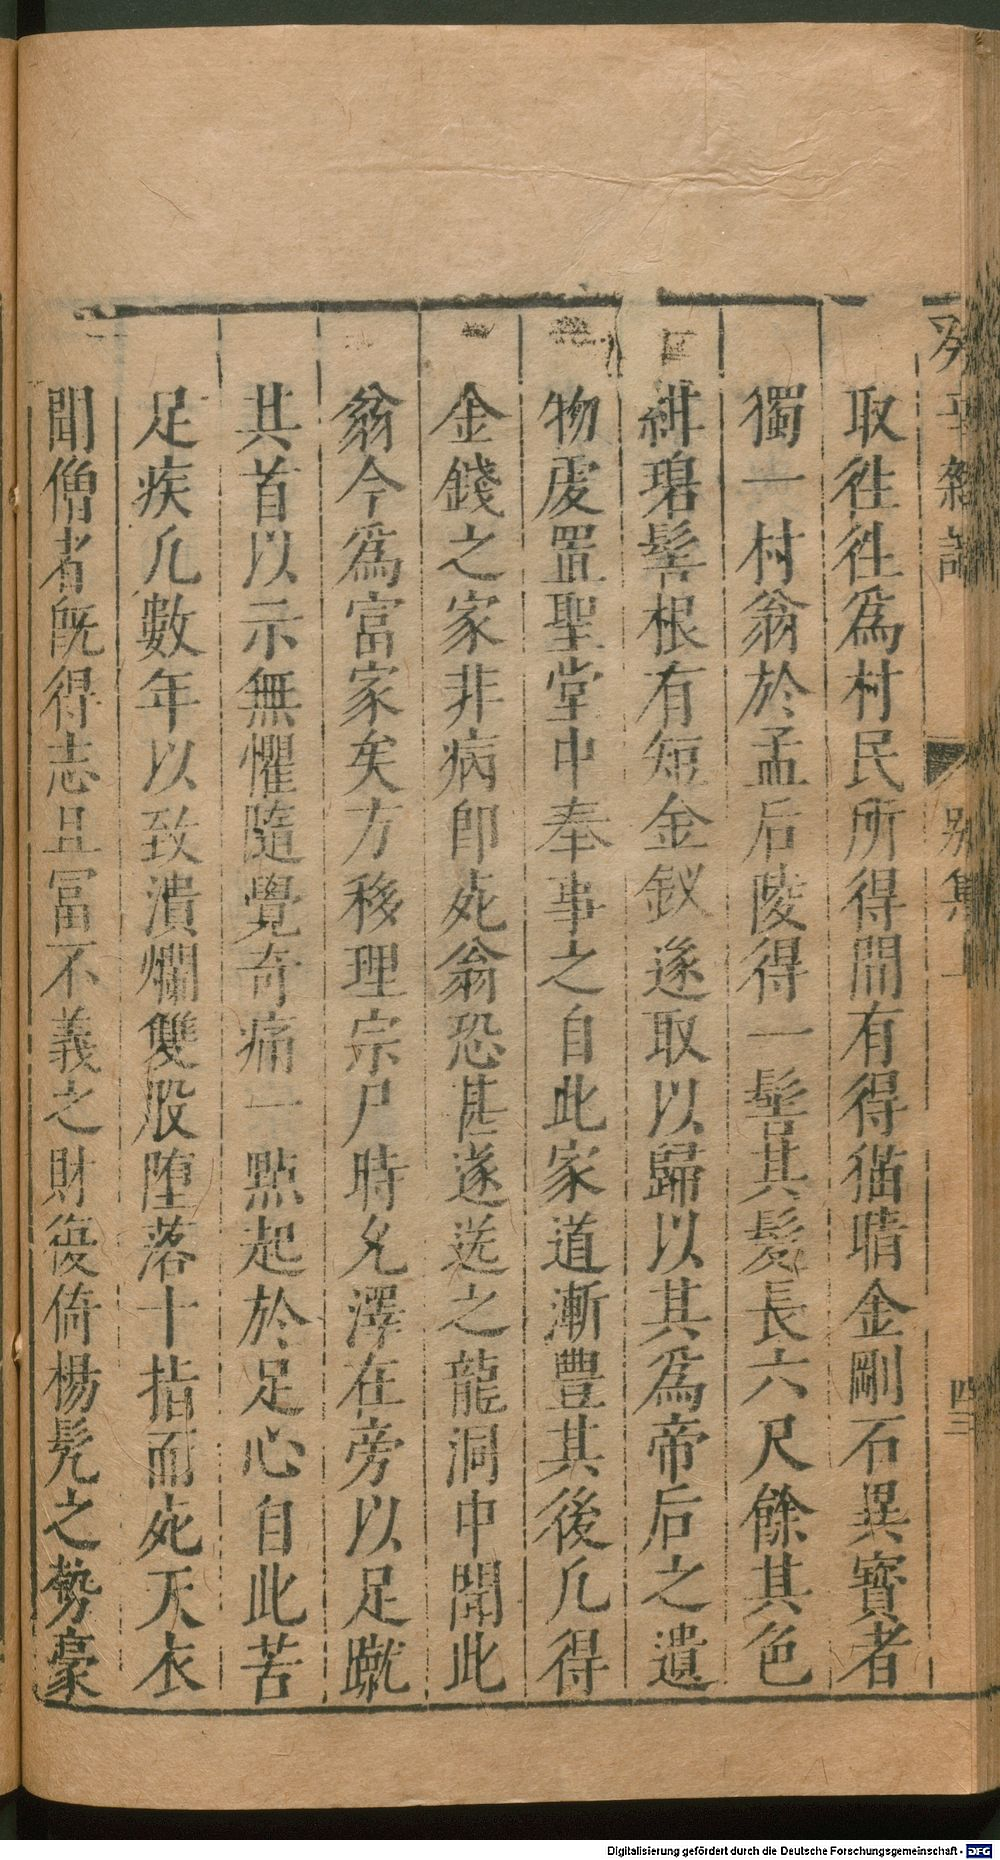 癸辛雜識
別集上
四三
取徃徃爲村民所得間有得猫睛金剛石異寳者
獨一村翁於孟后陵得一髻其髮長六尺餘其色
紺碧髻根有短金釵遂取以歸以其爲帝后之遺
物庋置聖堂中奉事之自此家道漸豐其後凢得
金錢之家非病即死翁恐甚遂送之龍洞中聞此
翁今爲富家矣方移理宗尸時允澤在旁以足蹴
其首以示無懼隨覺奇痛一點起於足心自此苦
足疾凢數年以致潰爛雙股墮落十指而死天衣
聞僧者旣得志且冨不義之財復倚楊髡之勢豪
Digitalisierung gefördert durch die Deutsche Forschungsgemeinschaft - DFG